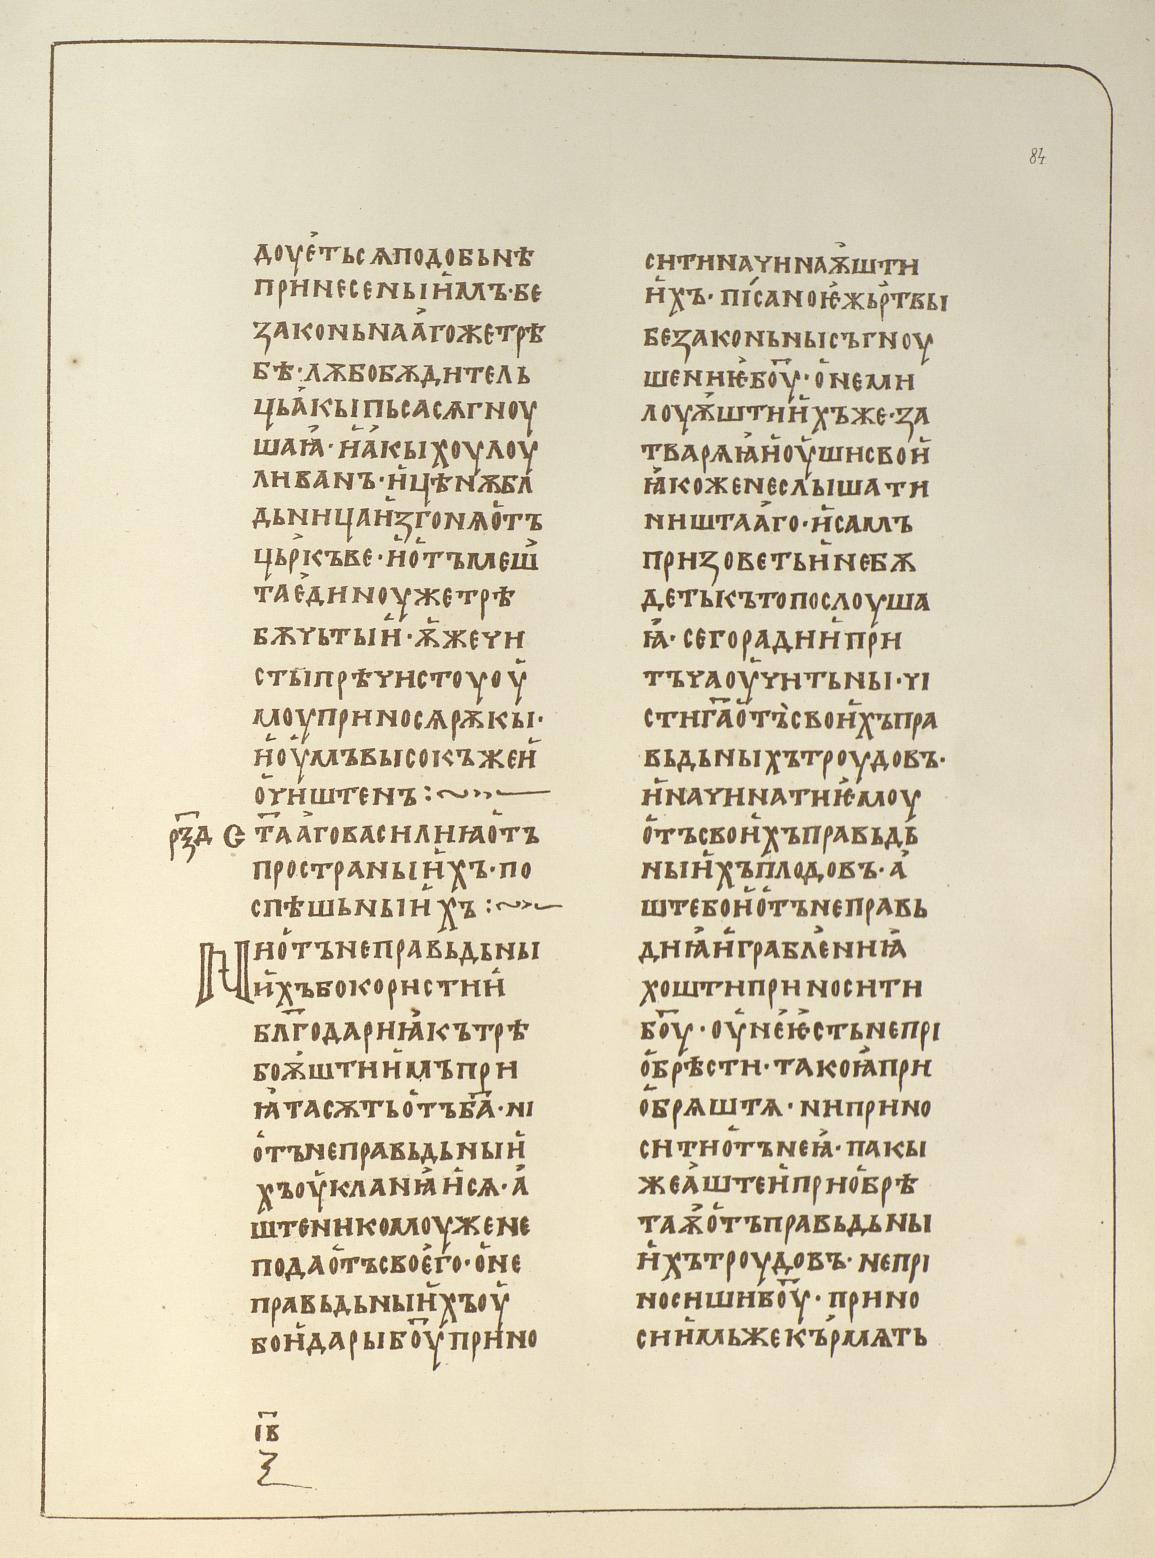 84
доуе҆тьсѧподобьнѣ
принесеныи҆мъ·бе
законьнаа҆гожетрѣ
бѣ·лѫбобѫдитель
цьа҆кыпьсасѧгноу
шаꙗ҆·и҆а҆кыхоулоу
ливанъ·и҆цѣнѫбл
дьницаи҆згонѧо҆тъ
цьр҆къве·и҆о҆тъмеш҆
тае҆диноужетрѣ
бѫчьтыи҆·ѫ҆жечи
стыпрѣчистоуоу҆
моуприносѧрѫкы·
и҆оу҆мъвысокъжеи҆
оч҆иштенъ:~
р҃з҃д с҃таа҆говасилиꙗо҆тъ
пространыи҆хъ·по
спѣшьныи҆хъ:~
Ино҆тънеправьдьны
и҆хъбокористии҆
бл҃годариꙗ҆кътрѣ
боѫ҆штии҆мъпри
ꙗ҆тасѫтьо҆тъб҃а·ні
о҆тънеправьдьныи҆
хъоу҆кланꙗ҆и҆сѧ·а҆
штеникомоужене
подао҆тъсвое҆го·о҆не
правьдьныи҆хъоу҆
бои҆дарыб҃оуприно
ситиначинаѫ҆шти
и҆хъ·пі҆саноѥ҆жьр҆твы
безаконьнысъгноу
шениѥб҃оу·о҆неми
лоуѫ҆штии҆хъже·за
тварѧꙗ҆и҆оу҆шисвои҆
ꙗ҆коженеслышати
ништаа҆го·и҆самъ
призоветьи҆небѫ
детькътопослоуша
ꙗ҆·сегорадии҆при
тъчаоу҆читьны·чі
стиг҃ао҆тъсвои҆хъпра
вьдьныхътроудовъ·
и҆начинатиѥ҆моу
о҆тъсвои҆хъправьдь
ныи҆хъплодовъ·а҆
штебои҆о҆тънеправь
диꙗ҆и҆грабл҆ениꙗ҆
хоштиприносити
б҃оу·оу҆неѥ҆стьнепрі
о҆брѣсти·такоꙗ҆при
о҆брѧштѧ·ниприно
ситио҆тънеꙗ҆·пакы
жеа҆штеи҆прио҆брѣ
таѫ҆о҆тъправьдьны
и҆хътроудовъ·непрі
носишиб҃оу·прино
сии҆мьжекър҆мѧть
і҃в